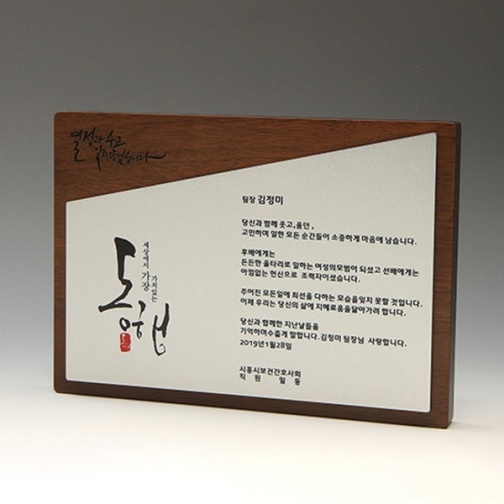 열정과 수고
잊지않겠습니다
세상에서 가장
가치있는
동행
팀장 김정미
당신과 함께 웃고,울던 ,
고민하며 일한 모든 순간들이 소중하게 마음에 남습니다.
후배에게는
든든한 울타리로 일하는 여성의모범이 되셨고 선배에게는
아낌없는 헌신으로 조력자이셨습니다.
주어진 모든일에 최선을 다하는 모습을잊지 못할 것입니다.
이제 우리는 당신의 삶에 지혜로움을닮아가려 합니다.
당신과 함께한 지난날들을
기억하며수줍게 말합니다.김정미 팀장님 사랑합니다.
2019년1월28일
시흥시보건간호사회
직 원 일 동